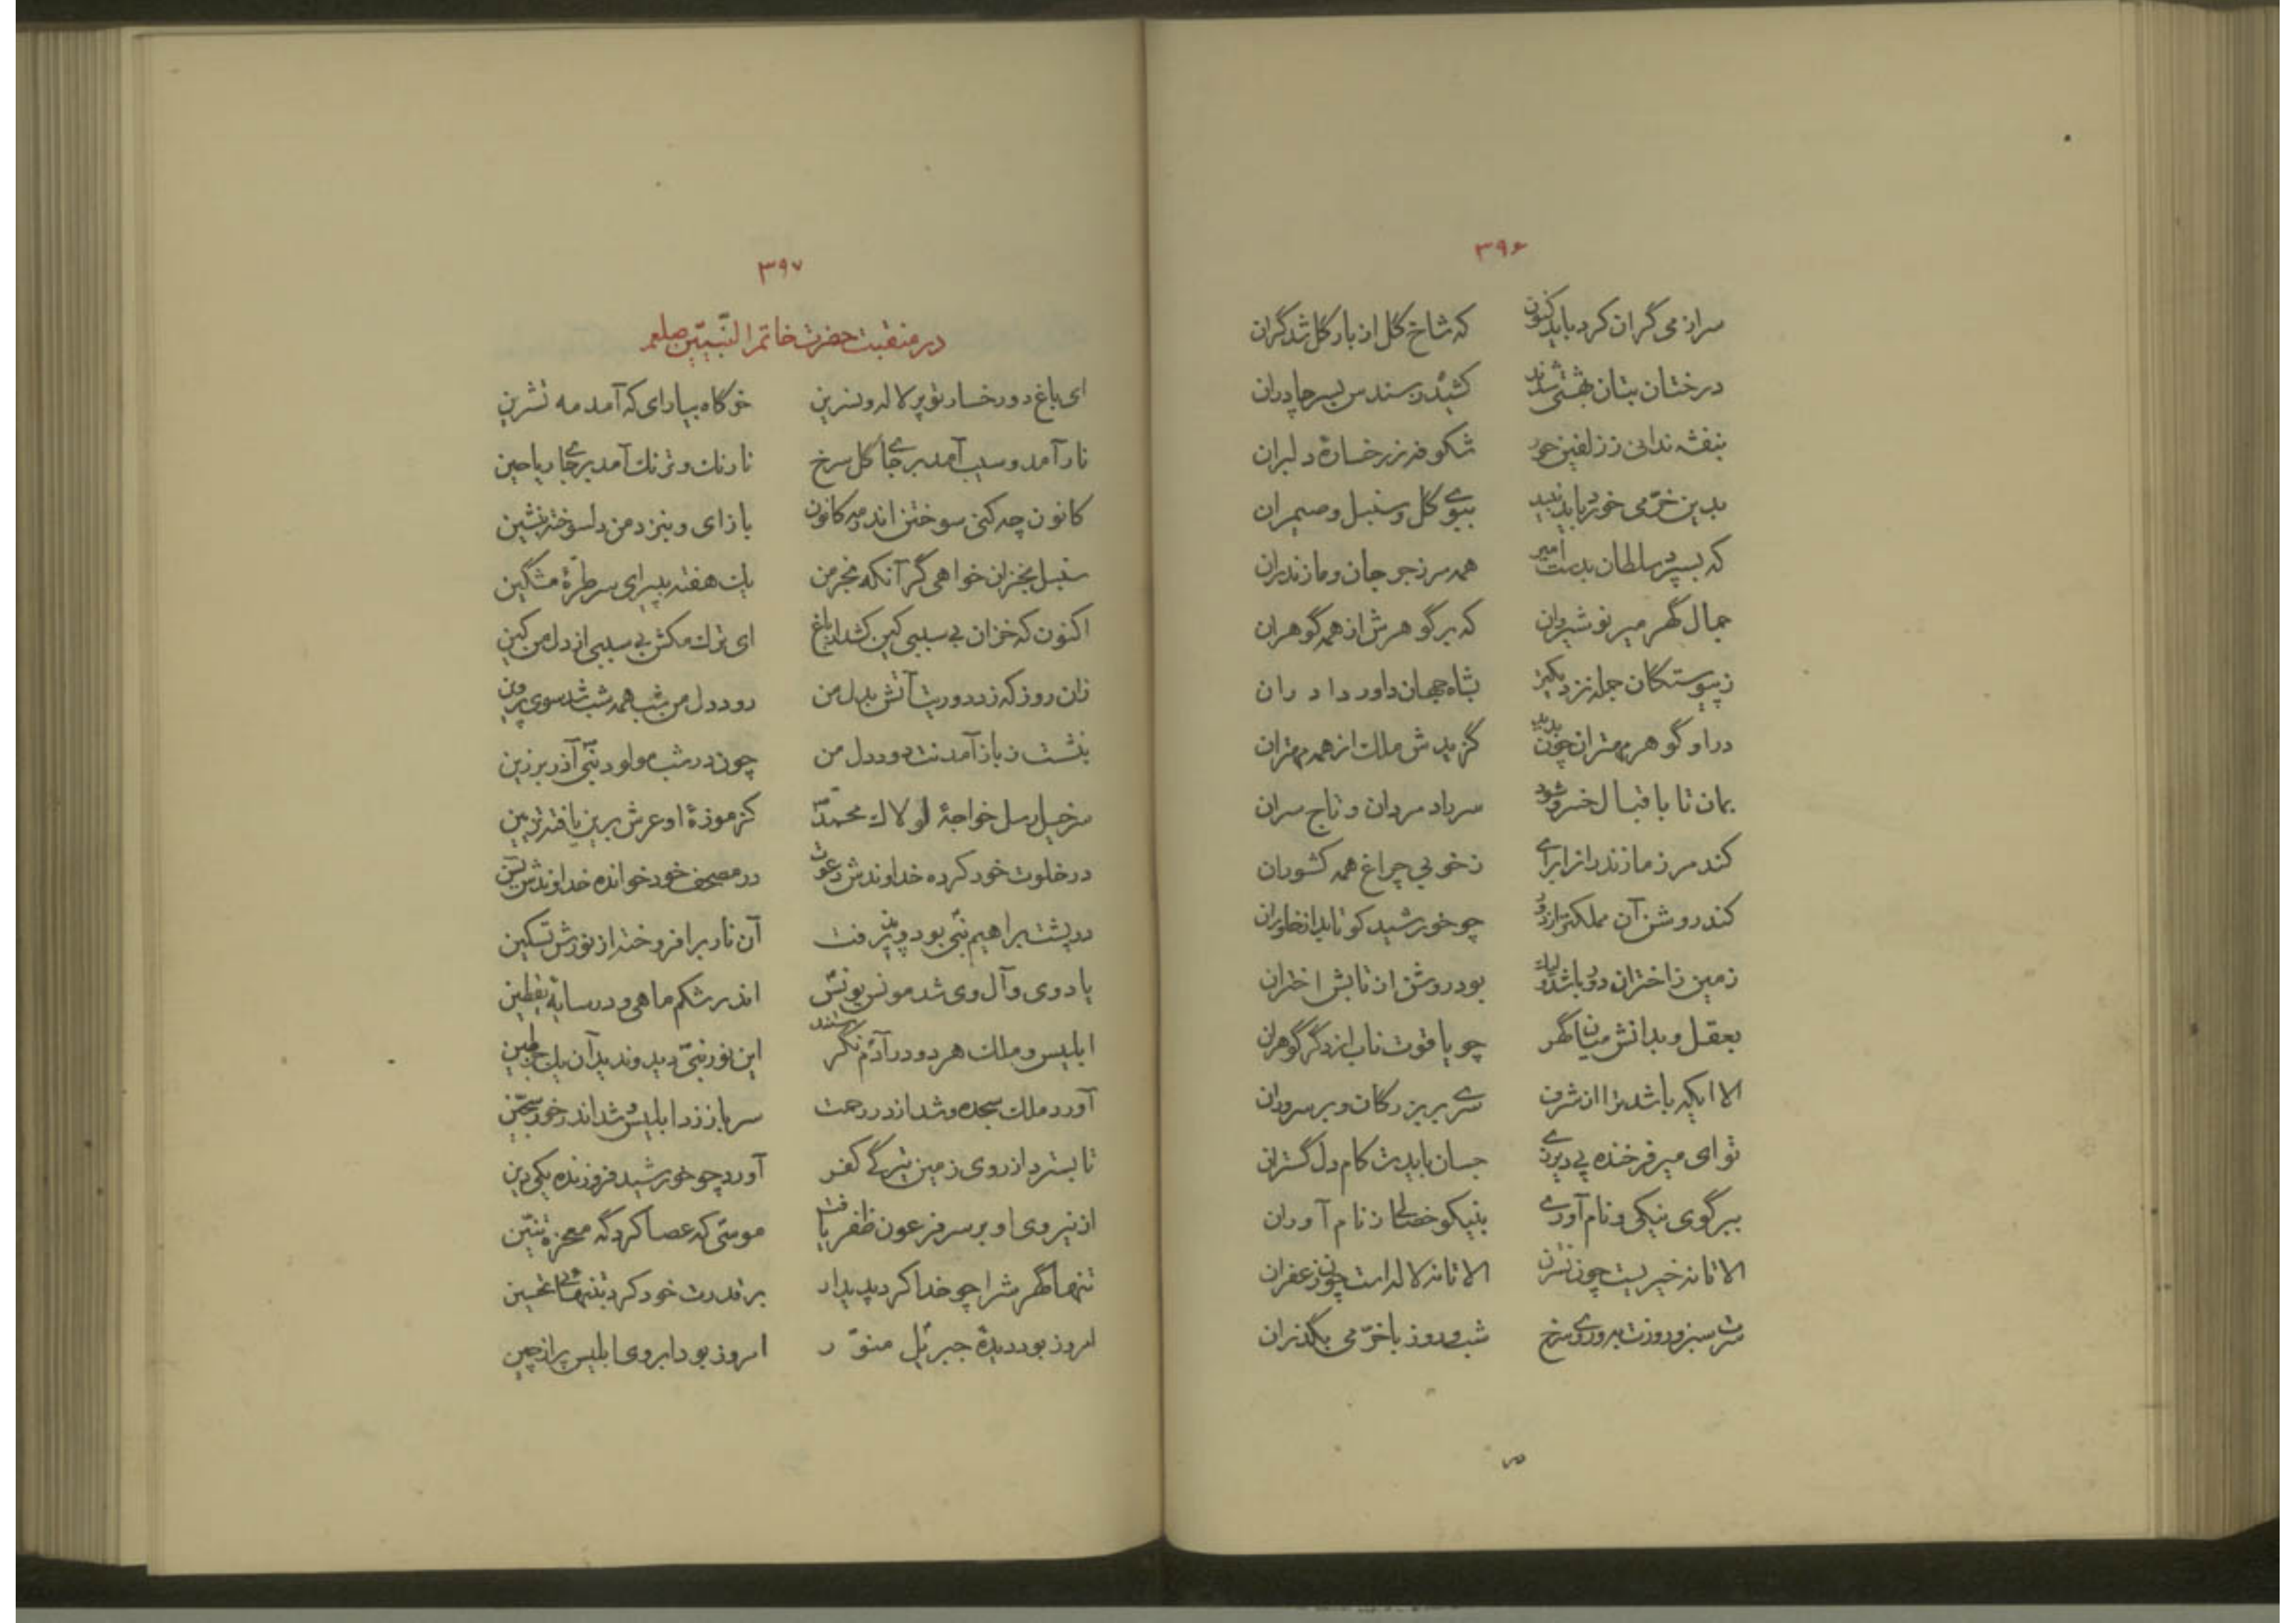 ۳۹۶
سر از می گران کرد باید کنون که شاخ گل از بار گل شد گران
درختان بتان بهشتی شدند کشیده ز سندس بسر چادران
بنفشه ندانی ز زلفین حور شکوفه ز رخسارهٔ دلبران
بدین خرّمی خورد باید نبید ببوی گل و سنبل و ضیمران
که بسپرد سلطان بدست امیر همه مرز جرجان و مازندران
جمال گهر میر نوشیروان که بر گوهرش از همه گوهران
ز پیوستگان جمله نزدیکتر بشاه جهان داور داوران
در او گوهر مهتران چون بدید گزیدش ملک از همه مهتران
بمان تا باقبال خسرو شود سر راد مردان و تاج سران
کند مرز مازندران از ابرای ز خوبی چراغ همه کشوران
کند روشن آن مملکت را ز دور چو خورشید کو تابد از خاوران
زمین ز اختران دور باشد ولیک بود روشن از تابش اختران
بعقل و بدانش میان گهر چو یاقوت ناب از دگر گوهران
الا ایکه باشد ترا از شرف سری بر بزرگان و بر سروران
تو ای میر فرخنده پی دیر زی جسان بایدت کام دل گستران
ببر گوی نیکی و نام آوری بنیکو خصالی ز نام آوران
الا تا نه خیریست چون نسترن الا تا نه لاله است چون زعفران
سرت سبز و روزت به و روی سرخ شب و روز با خرّمی بگذران
۳۹۷
در منقبت حضرت خاتم النّبیّین صلعم
ای باغ دو رخسار تو پر لاله و نسرین خرگاه بیارای که آمد مه تشرین
نار آمد و سیب آمد بر جای گل سرخ نارنگ و ترنگ آمد بر جای ریاحین
کانون چه کنی سوختن اندر مه کانون باز ای و بنزد من دلسوخته بنشین
سنبل بخزان خواهی گر آنکه بخرمن یک هفته بپیرای سر طرّهٔ مشگین
اکنون که خزان بی سببی کین کشد از باغ ای ترک مکش بی سببی از دل من کین
زان روز که زد دوریت آتش بدل من دود دل من شب همه شب شد سوی پروین
بنشست ز باز آمدنت دود دل من چون در شب مولود نبی آذر برزین
سرخیل رسل خواجهٔ لولاک محمّد کز موزهٔ او عرش برین یافته تزیین
در خلوت خود کرده خداوندش دعوت در مصحف خود خوانده خداوندش یس
در پشت براهیم نبی بود و پذیرفت آن نار بر افروخته از نورش تسکین
یاد وی و آل وی شد مونس یونس اندر شکم ماهی و در سایهٔ یقطین
ابلیس و ملک هر دو در آدم نگرستند این نور نبی دید و ندید آن بجز طین
آورد ملک سجده و شد اندر رحمت سر باز زد ابلیس و شد اندر خور سجّین
تا بسترد از روی زمین تیرگی کفر آورد چو خورشید فروزنده یکی دین
از نیروی او بر سر فرعون ظفر یافت موسی که عصا کرد گه معجزه تنّین
تنها گهرش را چو خدا کرد پدیدار بر قدرت خود کرد بتنهائی تحسین
امروز بود دیدهٔ جبریل منوّر امروز بود ابروی ابلیس پر از چین